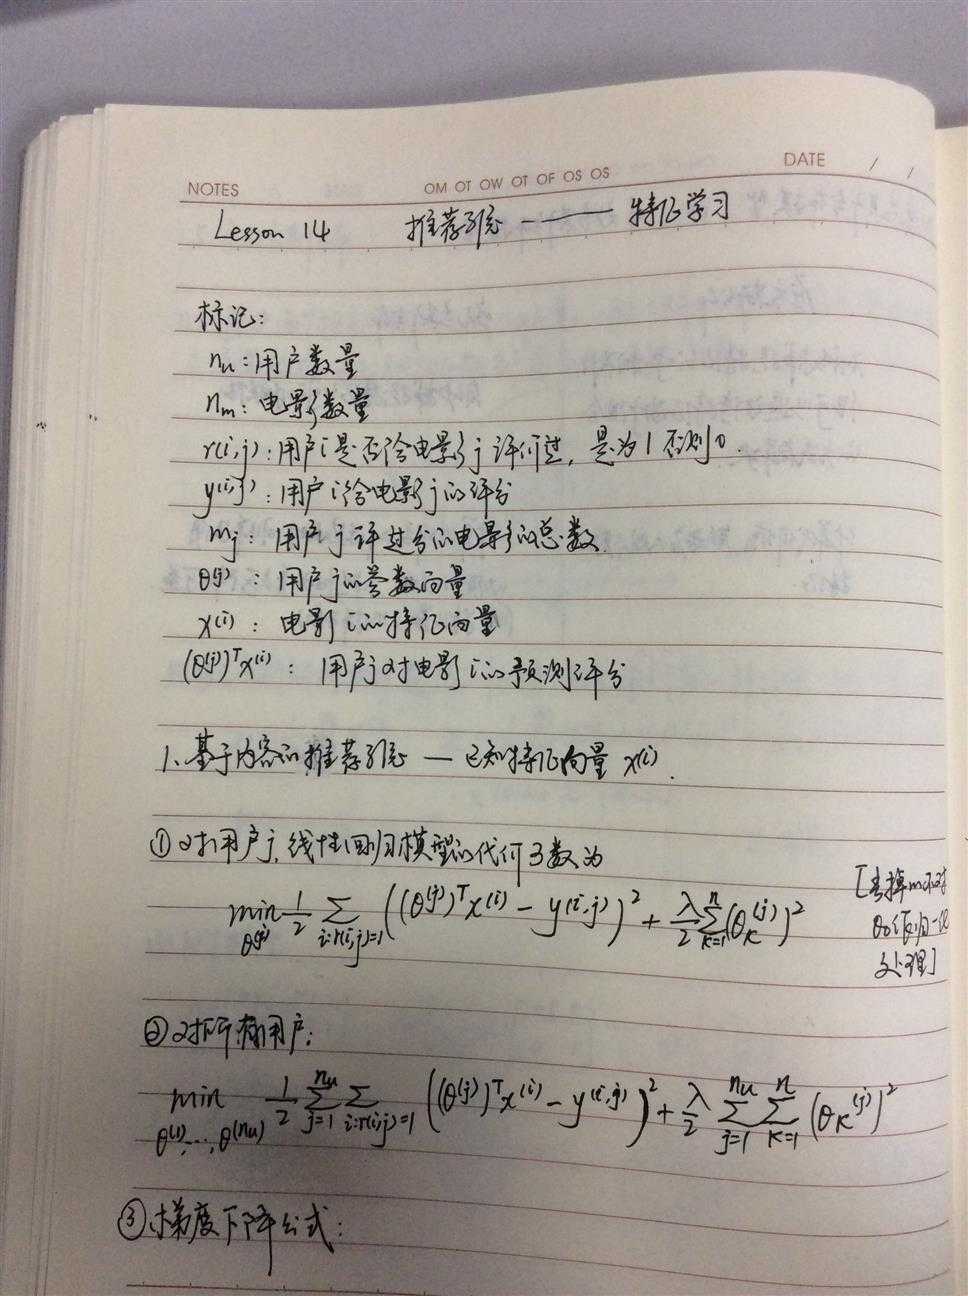 NOTES
OM OT OW OT OF OS OS
DATE / /
Lesson 14 推荐系统 —— 特征学习
标记:
nu: 用户数量
nm: 电影数量
r(i,j): 用户i是否给电影j评价过, 是为1否则0.
y(i,j): 用户i给电影j的评分
mj: 用户j评过分的电影的总数
θ(j): 用户j的参数向量
x(i): 电影i的特征向量
(θ(j))ᵀx(i): 用户j对电影i的预测评分
1. 基于内容的推荐系统 — 已知特征向量 x(i).
① 对用户j, 线性回归模型的代价函数为
min θ(j) 1/2 Σ i:r(i,j)=1 ((θ(j))ᵀx(i) - y(i,j))² + λ/2 Σ k=1 n (θk(j))²
[去掉m,不对
θ0作归一化
处理]
② 对所有用户:
min θ(1),...,θ(nu) 1/2 Σ j=1 nu Σ i:r(i,j)=1 ((θ(j))ᵀx(i) - y(i,j))² + λ/2 Σ j=1 nu Σ k=1 n (θk(j))²
③ 梯度下降公式: